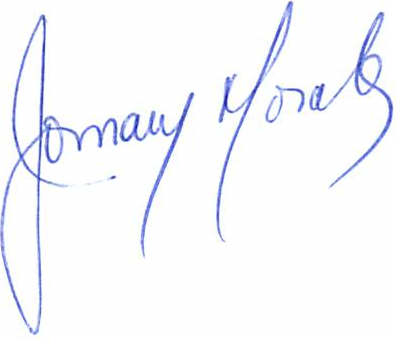 Jomary Morales